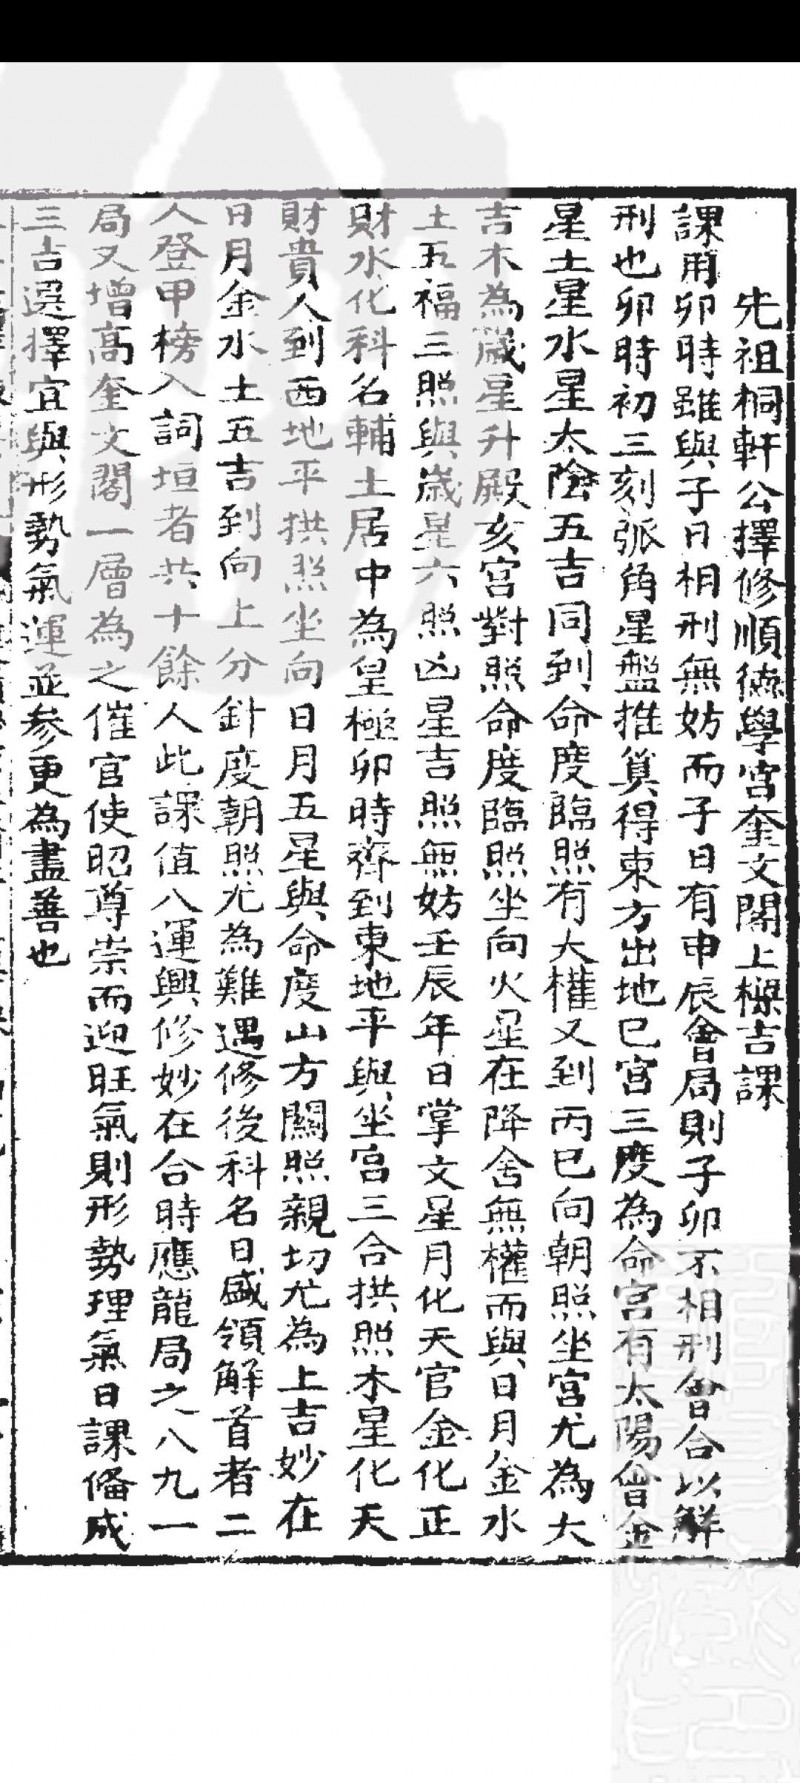 先祖桐軒公擇修順德學宮奎文閣上樑吉課
課用卯時雖與子日相刑無妨而子日有申辰會局則子卯不相刑會合以解
刑也卯時初三刻張角星盤推算得東方出地巳宮三度為命宮有太陽會金
星土星水星太陰五吉同到命度臨照有大權又到丙巳向朝照坐宮尤為大
吉木為歲星升殿亥宮對照命度臨照坐向火星在降舍無權而與日月金水
土五福三照與歲星六照凶星吉照無妨壬辰年日掌文星月化天官金化正
財水化科名輔土居中為皇極卯時齊到東地平與坐宮三合拱照木星化天
財貴人到西地平拱照坐向日月五星與命度山方關照親切尤為上吉妙在
日月金水土五吉到向上分針度朝照尤為難遇修後科名日盛領解首者二
人登甲榜入詞垣者共十餘人此課值八運興修妙在合時應龍局之八九一
局又增高奎文閣一層為之催官使昭尊崇而迎旺氣則形勢理氣日課備成
三吉選擇宜與形勢氣運並參更為盡善也